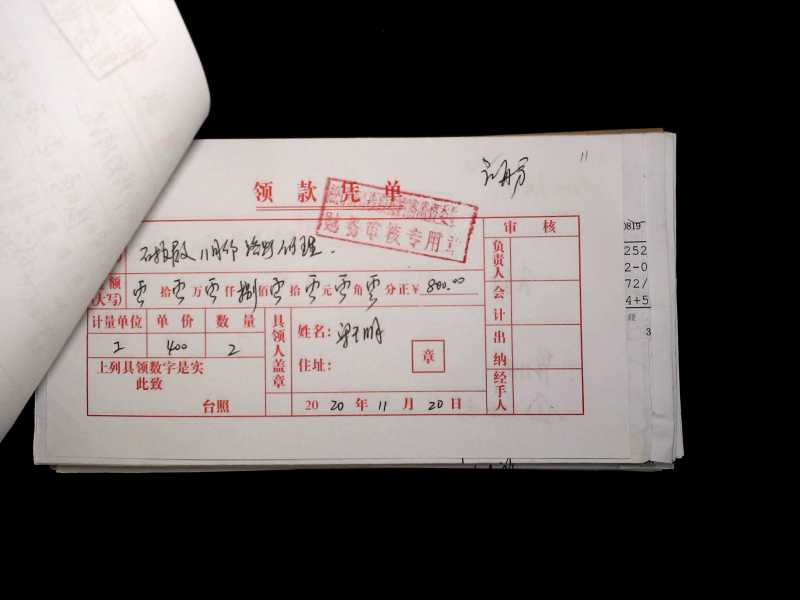 11
领款凭单
财务审核专用章
审核
11月份 道路清理
额
(大写) 零拾零万零仟捌佰零拾零元零角零分正¥ 800.00
计量单位 单价 数量
工 400 2
上列具领数字是实
此致
台照
具领人盖章
姓名:
住址:
章
2020年11月20日
负责人
会计
出纳
经手人
0819
252
2-0
72/
4+5
3